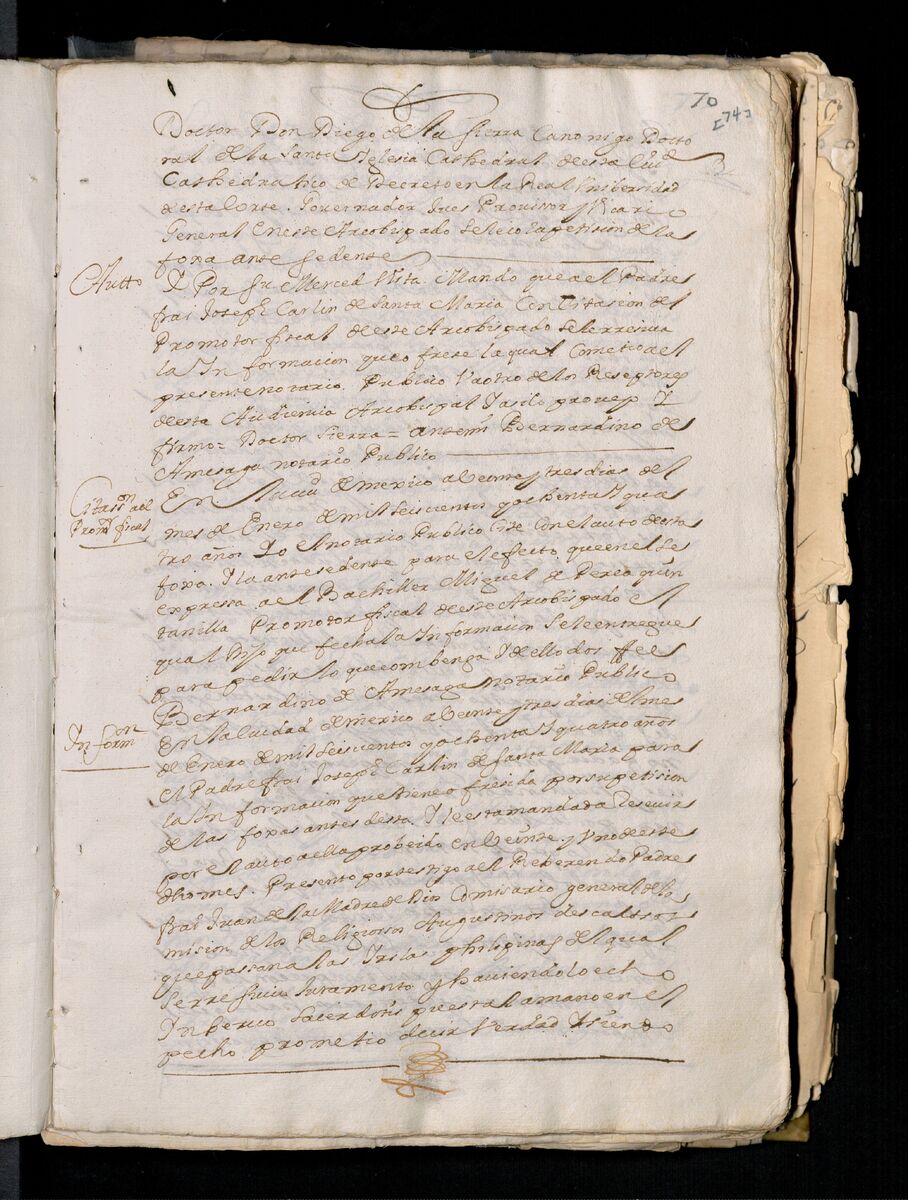 70
[74]
Doctor Don Diego de la Sierra Canonigo Docto
ral de la Santa Iglesia Cathedral de esta Ciud
Cathedratico de Decreto en la Real Universidad
de esta Corte. Governador Jues Provisor y Vicario
General en este Arcobispado se leio la petision de la
foxa antesedente
Autto
Y Por Su Merced Vista. Mando que a el Padre
frai Joseph Carlin de Santa Maria Con Citasion del
Promotor fiscal de este Arcobispado se le rresiva
la Informacion que ofrese la qual Cometio a el
presente notario. Publico U a otro de los Reseptores
de esta Audiencia Arcobispal Y asi lo proveyo Y
firmo = Doctor Sierra = Antemi Bernardino de
Amesaga notario Publico
Citasson a el
Promr fiscal
En la ciud de mexico a beinte y tres dias del
mes de Enero de mil seiscientos y ochenta Y qua
tro años Yo el notario Publico Cite Con el auto de esta
foxa. Y la antesedente para el efecto que en el se
expressa a el Bachiller Miguel de Perea quin
tanilla Promotor fiscal de este Arcobispado el
qual Dijo que fecha la Informacion Se le entregue
para pedir lo que combenga Y de ello doi ffee
Bernardino de Amesaga notario Publico
Informon
En la cuidad de mexico a beinte y tres dias del mes
de Enero de mil seiscientos y ochenta Y quatro años
el Padre frai Joseph Carlin de Santa Maria para
la Informacion que tiene ofresida por su petision
de las foxas antes desta. Y le esta mandada Reseuir
por el auto a ella probeido en beinte y uno de este
dho mes. Presento por testigo a el Reberendo Padre
frai Juan de la Madre de Dios Comisario general de la
mision de los Religiosos Augustinos descalsos
que passan a las Yslas philipinas del qual
Se rresiuio Juramento y hauiendolo echo
In berbo Sacerdotis puesta la mano en el
pecho prometio decir Verdad Y siendo